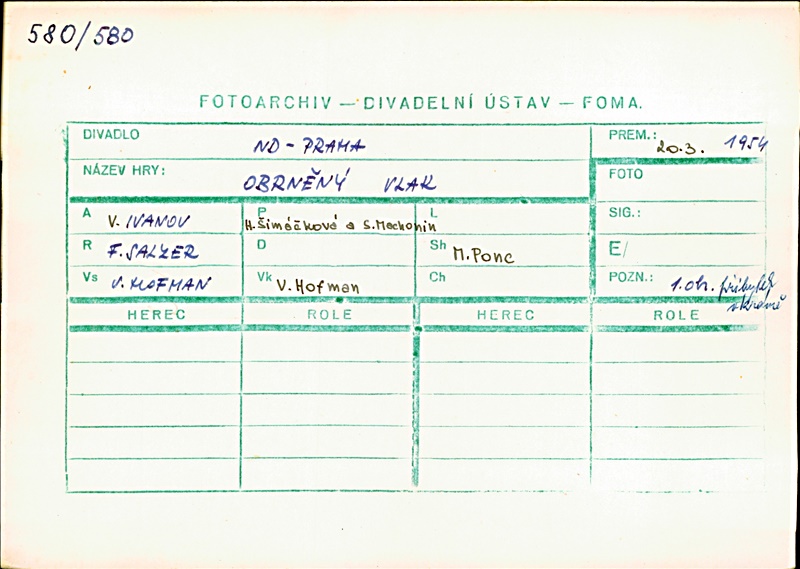 580/580
FOTOARCHIV — DIVADELNÍ ÚSTAV — FOMA.
DIVADLO ND - PRAHA
PREM.: 20.3. 1954
NÁZEV HRY: OBRNĚNÝ VLAK
FOTO
A V. IVANOV P H. Šiméčková a S. Machonin L
SIG.:
R F. SALZER D Sh M. Ponc
E/
Vs V. HOFMAN Vk V. Hofman Ch
POZN.: 1.ob.
HEREC ROLE HEREC ROLE